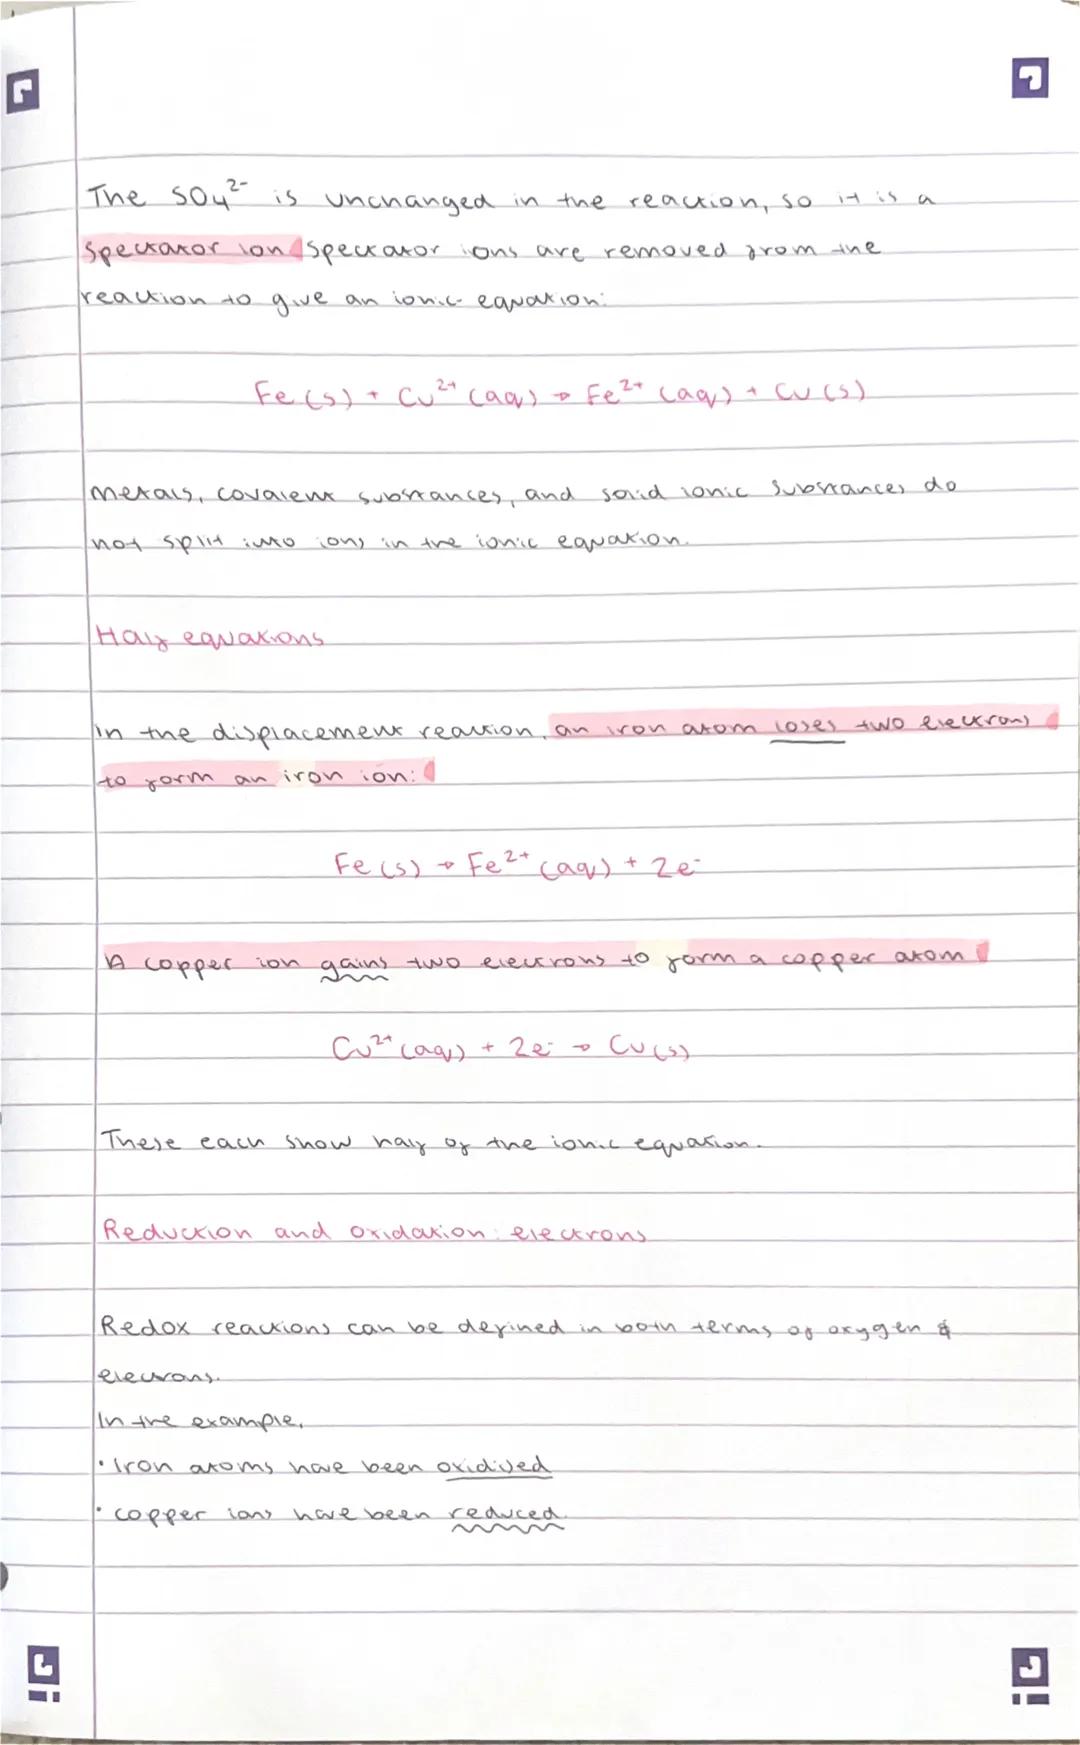 The SO₄²⁻ is unchanged in the reaction, so it is a
spectator ion. Spectator ions are removed from the
reaction to give an ionic equation:
Fe (s) + Cu²⁺ (aq) → Fe²⁺ (aq) + Cu (s)
Metals, covalent substances, and solid ionic substances do
not split into ions in the ionic equation.
Half equations
In the displacement reaction, an iron atom loses two electrons
to form an iron ion:
Fe (s) → Fe²⁺ (aq) + 2e⁻
A copper ion gains two electrons to form a copper atom
Cu²⁺ (aq) + 2e⁻ → Cu (s)
These each show half of the ionic equation.
Reduction and oxidation: electrons
Redox reactions can be defined in both terms of oxygen &
electrons.
In the example,
• Iron atoms have been oxidised
• copper ions have been reduced.